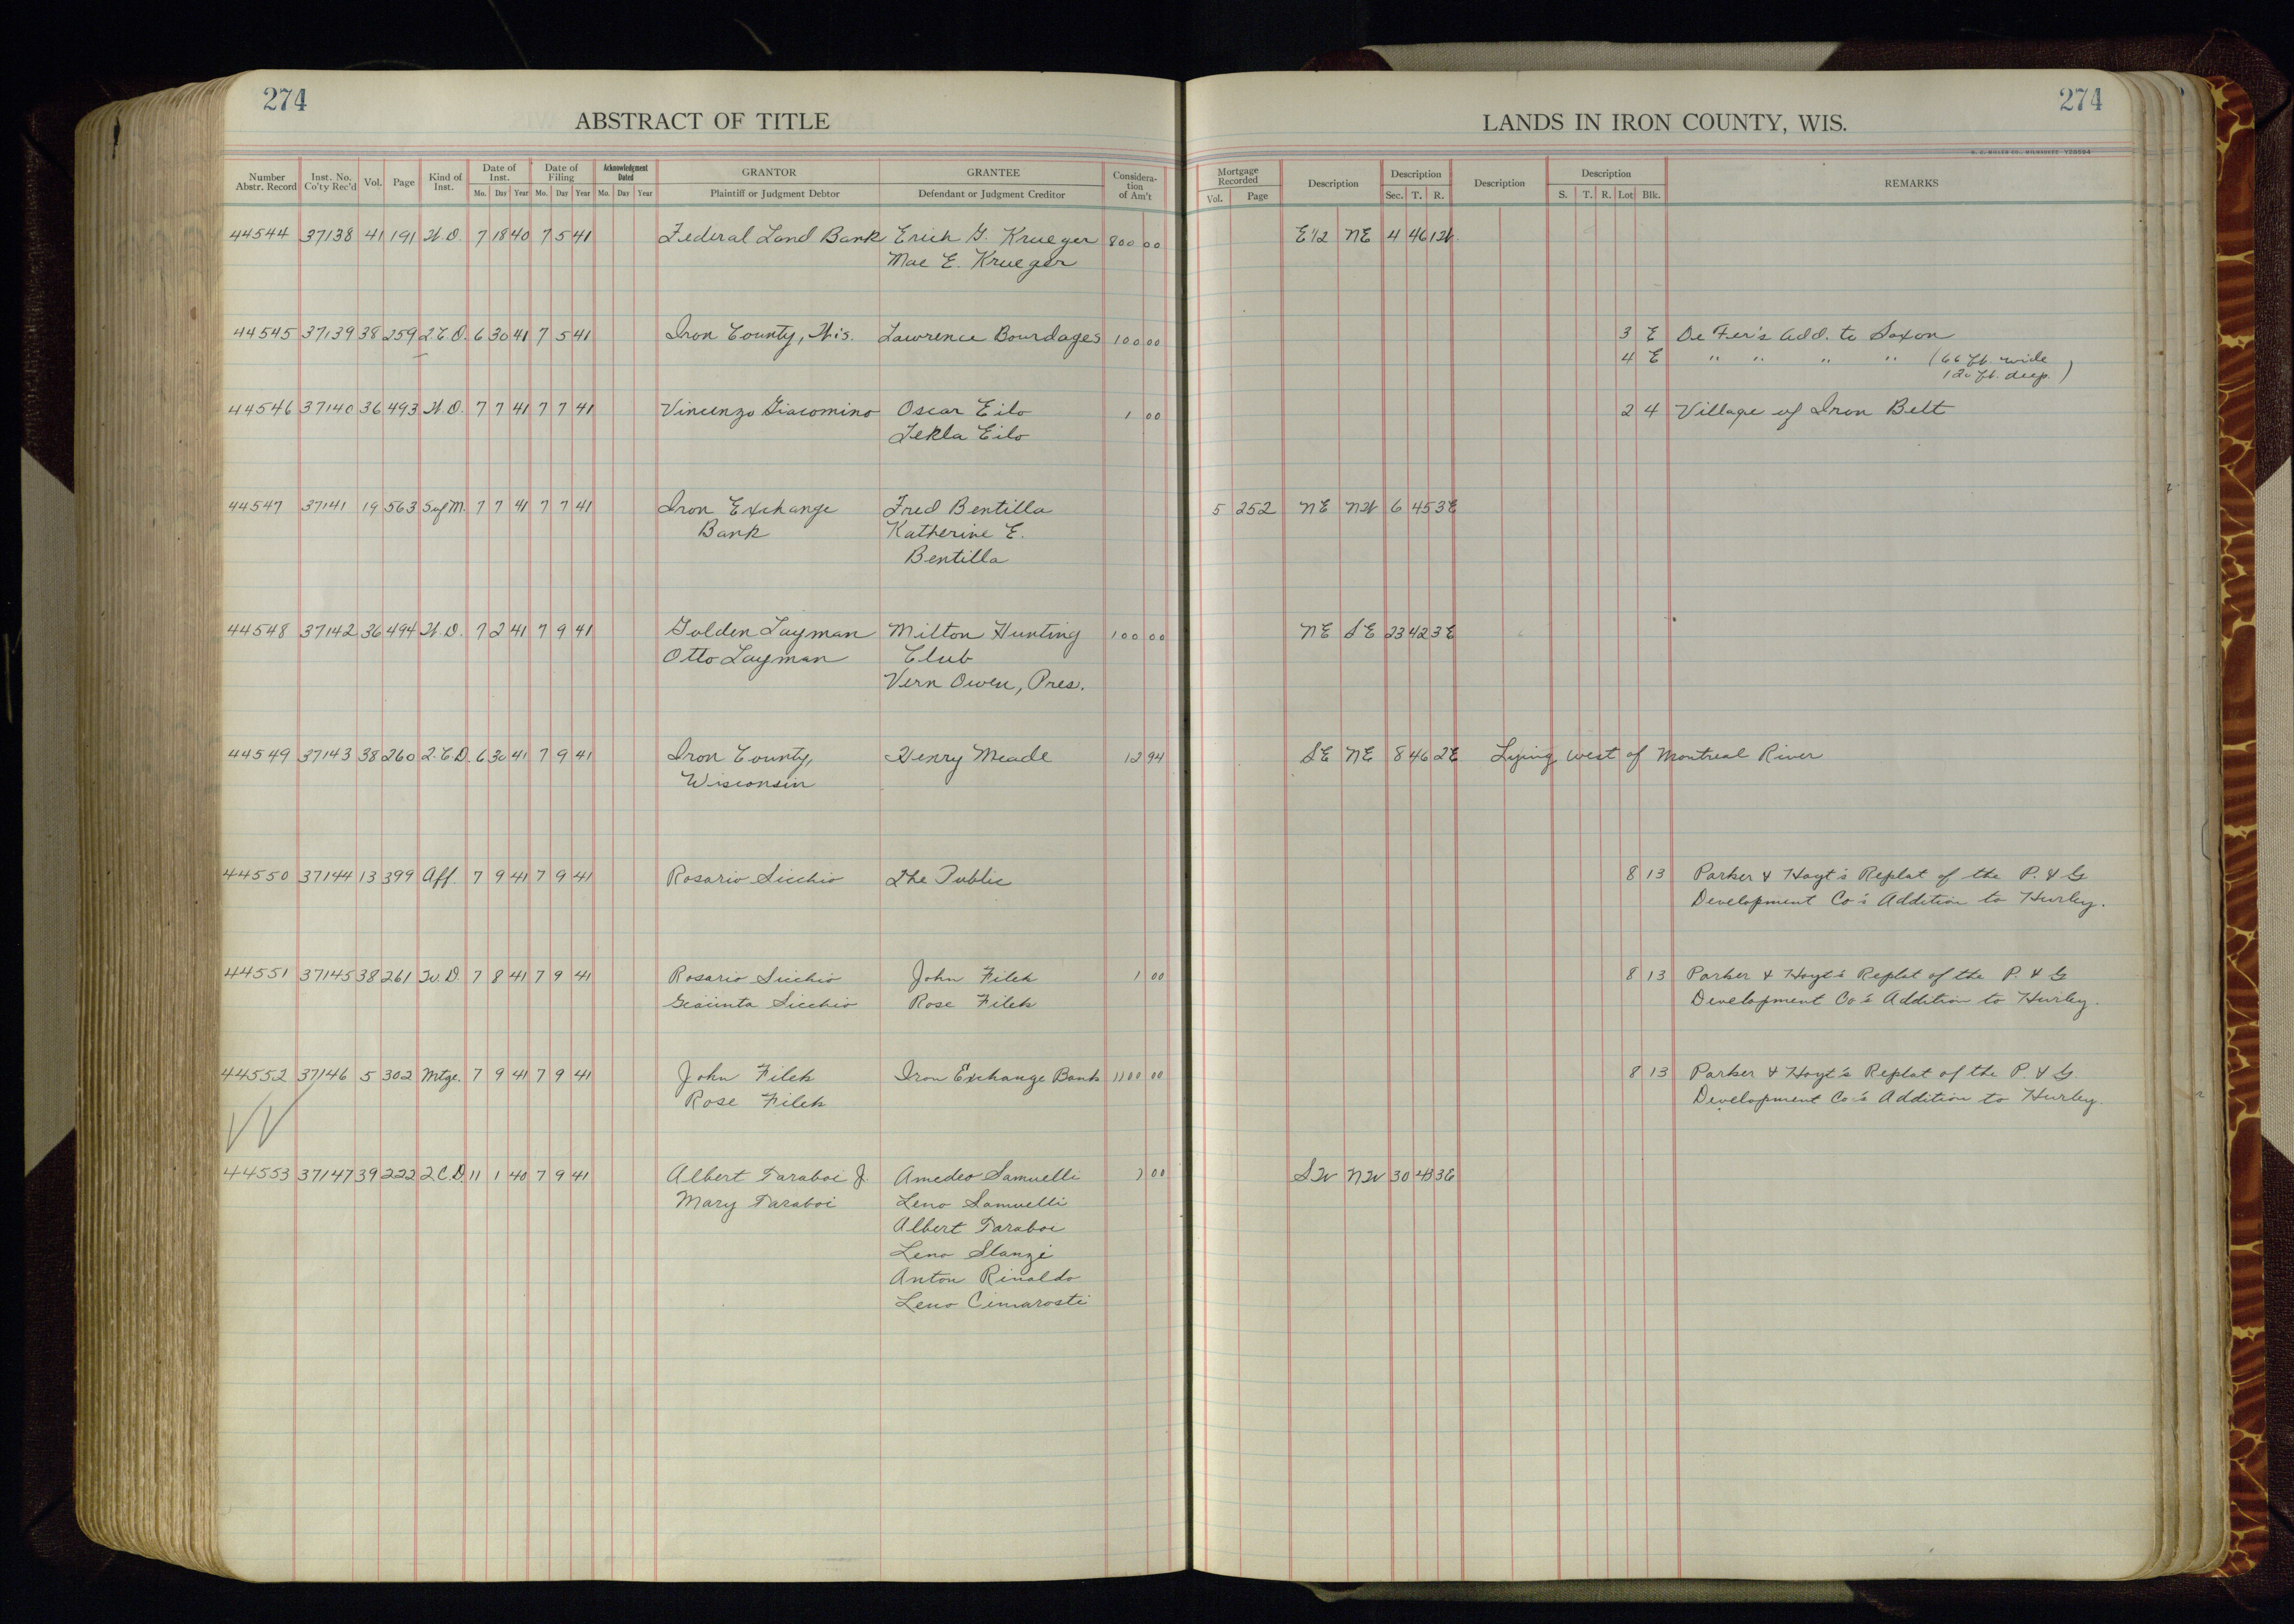 274
ABSTRACT OF TITLE
Number Abstr. Record Inst. No. Co'ty Rec'd Vol. Page Kind of Inst. Date of Inst. Mo. Day Year Date of Filing Mo. Day Year Acknowledgment Dated Mo. Day Year GRANTOR Plaintiff or Judgment Debtor GRANTEE Defendant or Judgment Creditor Considera-tion of Am't
274
LANDS IN IRON COUNTY, WIS.
H. C. MILLER CO., MILWAUKEE
Mortgage Recorded Vol. Page Description Description Sec. T. R. Description Description S. T. R. Lot Blk. REMARKS
44544 37138 41 191 W.D. 7 18 40 7 5 41 Federal Land Bank Erich G. Krueger 800 00 E1/2 NE 4 46 1W
Mae E. Krueger
44545 37139 38 259 2.C.D. 6 30 41 7 5 41 Iron County, Wis. Lawrence Bourdages 100 00 3 E De Fer's Add. to Saxon
4 E " " " " (66 ft. wide
120 ft. deep.)
44546 37140 36 493 W.D. 7 7 41 7 7 41 Vincenzo Giacomino Oscar Eilo 1 00 2 4 Village of Iron Belt
Tekla Eilo
44547 37141 19 563 S of M. 7 7 41 7 7 41 Iron Exchange Fred Bentilla 5 252 NE NW 6 45 3E
Bank Katherine E.
Bentilla
44548 37142 36 494 W.D. 7 2 41 7 9 41 Golden Layman Milton Hunting 100 00 NE SE 23 42 3E
Otto Layman Club
Vern Owen, Pres.
44549 37143 38 260 2.C.D. 6 30 41 7 9 41 Iron County, Henry Meade 12 94 SE NE 8 46 2E Lying west of Montreal River
Wisconsin
44550 37144 13 399 Aff. 7 9 41 7 9 41 Rosario Sicchio The Public 8 13 Parker & Hoyt's Replat of the P. & G
Development Co's Addition to Hurley.
44551 37145 38 261 W.D. 7 8 41 7 9 41 Rosario Sicchio John Filek 1 00 8 13 Parker & Hoyt's Replat of the P. & G
Sicchio Rose Filek Development Co's Addition to Hurley.
44552 37146 5 302 Mtge. 7 9 41 7 9 41 John Filek Iron Exchange Bank 1100 00 8 13 Parker & Hoyt's Replat of the P. & G.
Rose Filek Development Co's Addition to Hurley.
44553 37147 39 222 2 C.D. 11 1 40 7 9 41 Albert Taraboi J. Amedeo Samuelli 1 00 SW NW 30 43 3E
Mary Taraboi Leno Samuelli
Albert Taraboi
Leno Slanzi
Anton Rinaldo
Leno Cimarosti